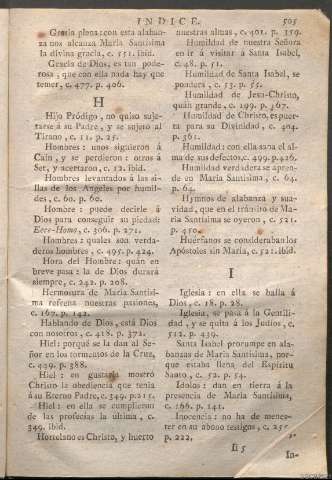 INDICE. 505
Gracia plena: con esta alaban-
za nos alcanza Maria Santisima
la divina gracia, c. 551. ibid.
Gracia de Dios, es tan pode-
rosa, que con ella nada hay que
temer, c. 477. p. 406.
H
Hijo Pródigo, no quiso suje-
tarse á su Padre, y se sujetó al
Tirano, c. 11. p. 25.
Hombres: unos siguieron á
Cain, y se perdieron: otros á
Set, y acertaron, c. 12. ibid.
Hombres levantados á las si-
llas de los Angeles por humil-
des, c. 60. p. 60.
Hombre: puede decirle á
Dios para conseguir su piedad:
Ecce-Homo, c. 306. p. 271.
Hombres: quales son verda-
deros hombres, c. 495. p. 424.
Hora del Hombre: quán en
breve pasa: la de Dios durará
siempre, c. 242. p. 208.
Hermosura de Maria Santisi-
ma refrena nuestras pasiones,
c. 167. p. 142.
Hablando de Dios, está Dios
con nosotros, c. 418. p. 372.
Hiel: porqué se la dan al Se-
ñor en los tormentos de la Cruz,
c. 449. p. 388.
Hiel: en gustarla mostró
Christo la obediencia que tenia
á su Eterno Padre, c. 349. p. 215.
Hiel: en ella se cumplieron
de las profecías la última, c.
349. ibid.
Hortelano es Christo, y huerto
nuestras almas, c. 401. p. 359.
Humildad de nuestra Señora
en ir á visitar á Santa Isabel,
c. 48. p. 51.
Humildad de Santa Isabel, se
pondera, c. 53. p. 55.
Humildad de Jesu-Christo,
quán grande, c. 199. p. 367.
Humildad de Christo, es puer-
ta para su Divinidad, c. 404.
p. 361.
Humildad: con ella sana el al-
ma de sus defectos, c. 499. p. 426.
Humildad verdadera se apren-
de en Maria Santisima, c. 64.
p. 64.
Hymnos de alabanza y sua-
vidad, que en el tránsito de Ma-
ria Santisima se oyeron, c. 521.
p. 450.
Huérfanos se consideraban los
Apóstoles sin Maria, c. 521. ibid.
I
Iglesia: en ella se halla á
Dios, c. 18. p. 28.
Iglesia, se pasa á la Gentili-
dad, y se quita á los Judios, c.
512. p. 439.
Santa Isabel prorumpe en ala-
banzas de Maria Santisima, por-
que estaba llena del Espiritu
Santo, c. 52. p. 54.
Idolos: dan en tierra á la
presencia de Maria Santisima,
c. 166. p. 141.
Inocencia: no ha de menes-
ter en su abono testigos, c. 250
p. 222.
Ii 5
In-